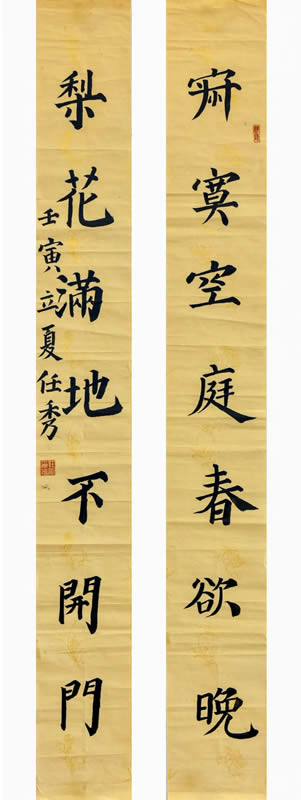 寂寞空庭春欲晚
梨花滿地不開門
壬寅立夏任秀